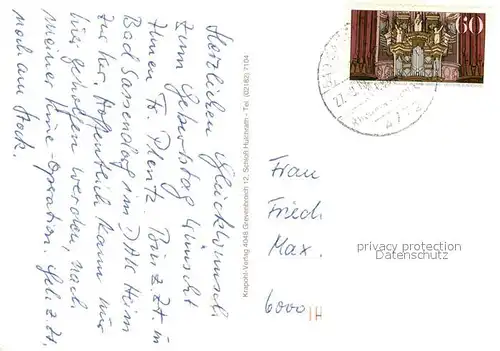 Herzlichen Glückwunsch
zum Geburtstag wünscht
Ihnen Fr. Plentz. Bin z. Zt. in
Bad Sassendorf im DAK Heim
zur Kur. Hoffentlich kann mir
hier geholfen werden, nach
meiner Knie-Operation. Geh z. Zt.
noch am Stock.
Krapohl-Verlag 4048 Grevenbroich 12, Schloß Hülchrath - Tel. (02182) 7104
60
Frau
Friedr.
Max.
6000
privacy protection
Datenschutz